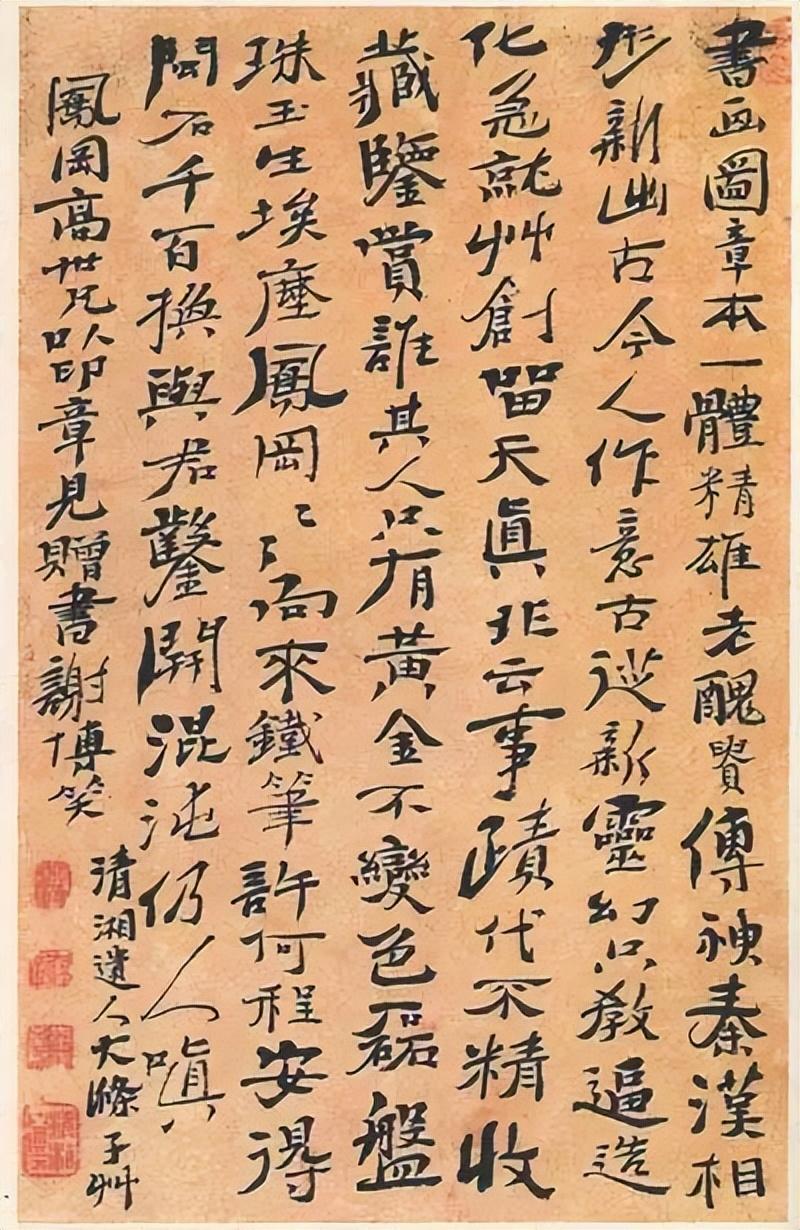 書画圖章本一體精雄老醜貴傳神秦漢相
形新出古今人作意古近新靈幻只教逼造
化急就艸創留天真非云事蹟代不精收
藏鑒賞誰其人只有黃金不變色磊盤
珠玉生埃塵鳳岡〻〻向來鐵筆許何程安得
閒石千百換與君鑿開混沌仍人嗔
鳳岡高世兄以印章見贈書謝博笑
清湘遺人大滌子艸